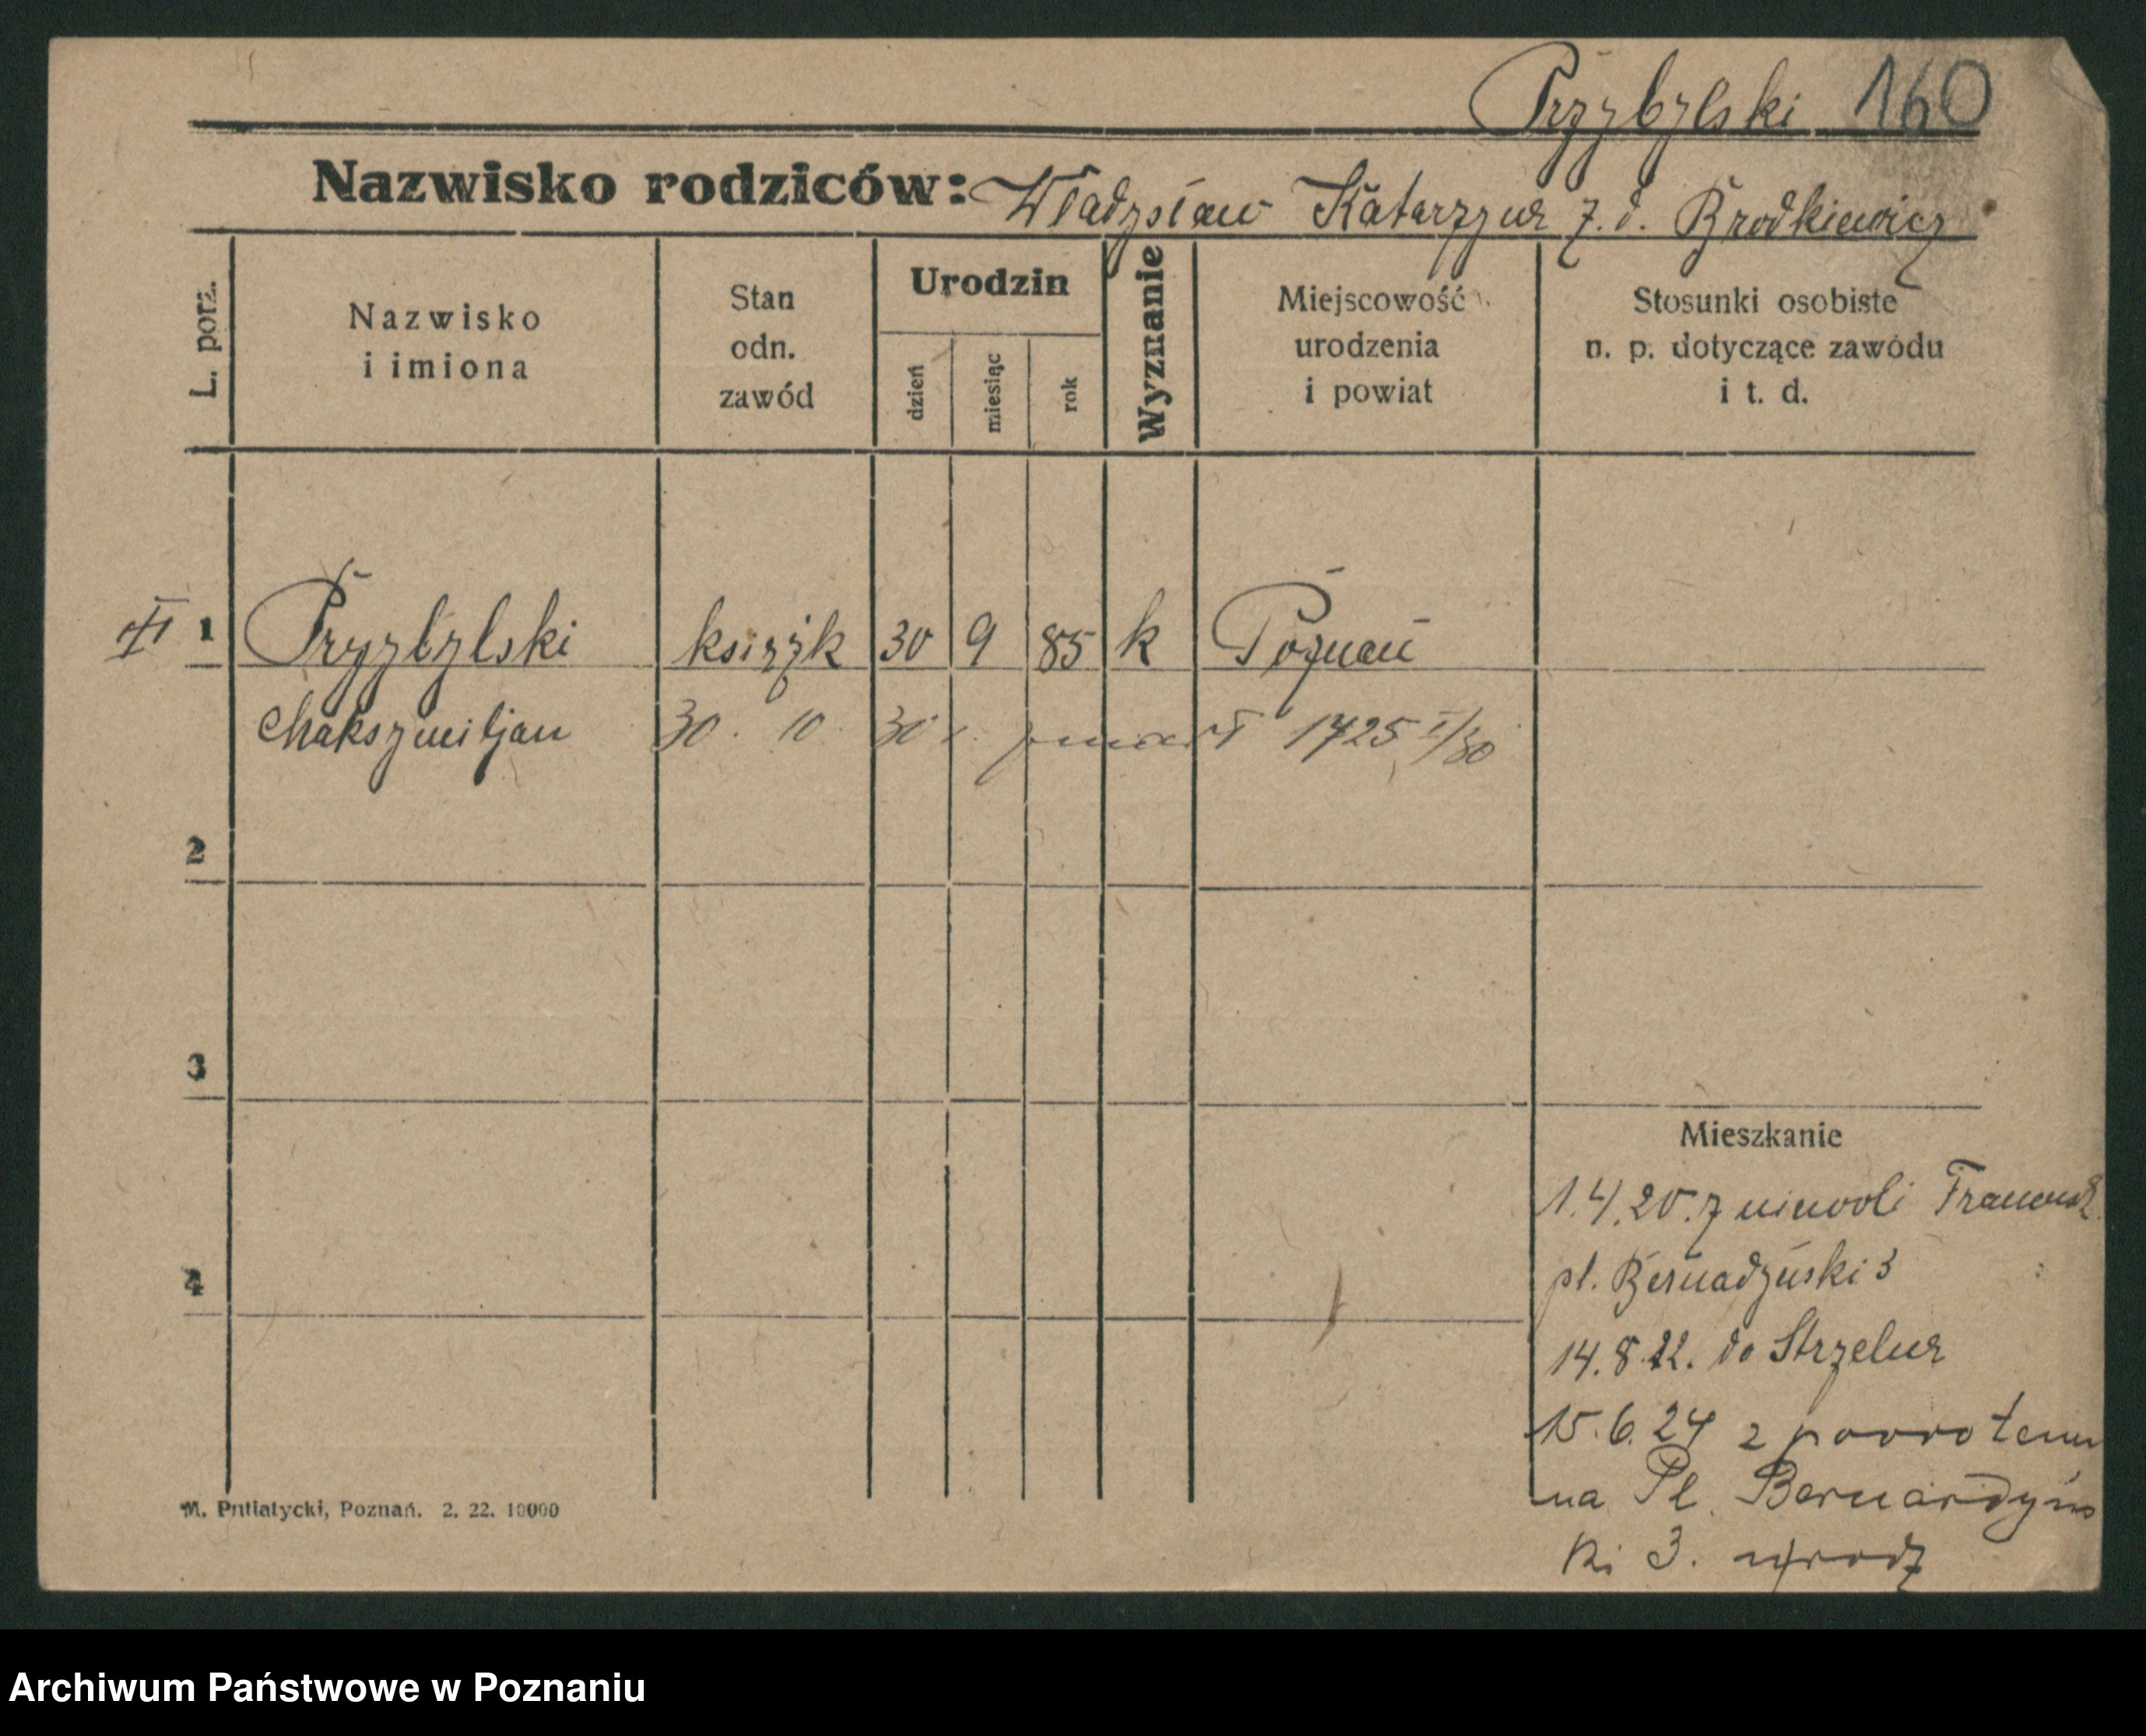 Przybylski 160
Nazwisko rodziców: Władysław Katarzyna z. d. Brodkiewicz
L. porz.
Nazwisko
i imiona
Stan
odn.
zawód
Urodzin
dzień
miesiąc
rok
Wyznanie
Miejscowość
urodzenia
i powiat
Stosunki osobiste
n. p. dotyczące zawodu
i t. d.
1 Przybylski książk 30 9 85 k Poznań
Makszymiljan 30. 10. 30 r. zmarł 1725 I/30
2
3
4
Mieszkanie
1.4.20. z niewoli
pl. Bernadyński 3
14.8.22. do Strzelna
15.6.24 z powrotem
na Pl. Bernardyńs
ki 3.
M. Putiatycki, Poznań. 2. 22. 10000
Archiwum Państwowe w Poznaniu